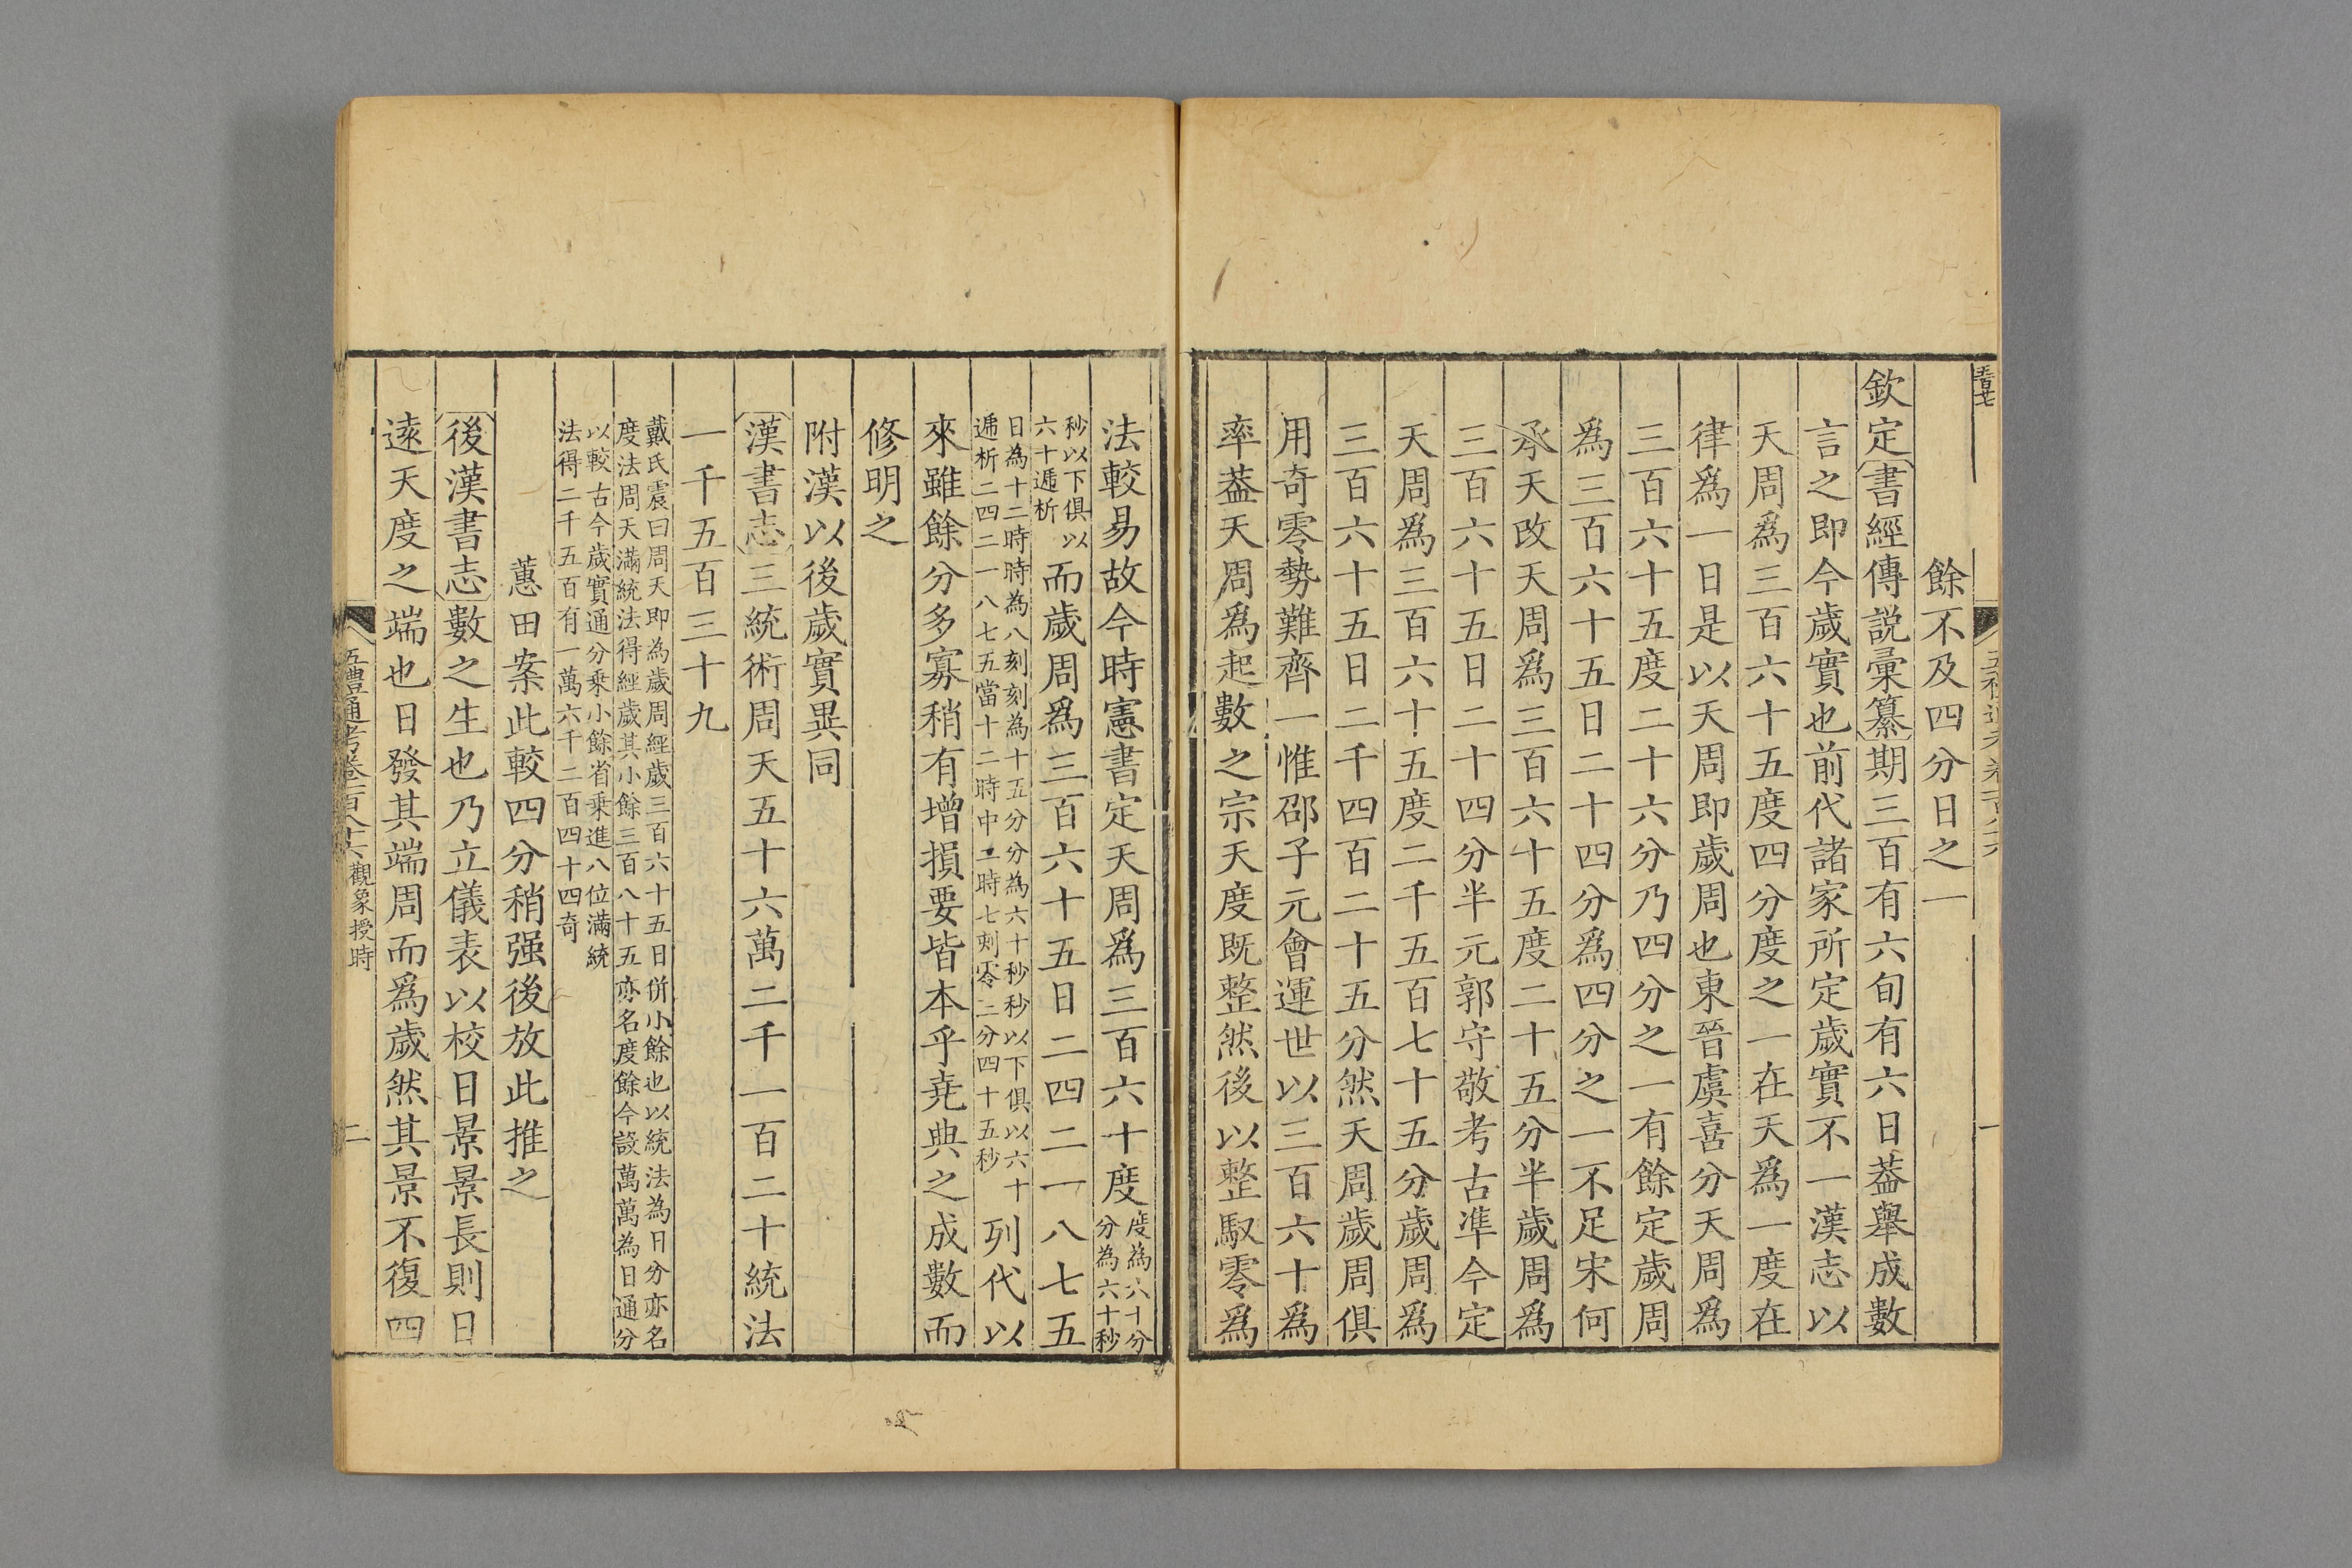 餘不及四分日之一
欽定書經傳説彙纂期三百有六旬有六日葢舉成數
言之即今歲實也前代諸家所定歲實不一漢志以
天周爲三百六十五度四分度之一在天爲一度在
律爲一日是以天周即歲周也東晉虞喜分天周爲
三百六十五度二十六分乃四分之一有餘定歲周
爲三百六十五日二十四分爲四分之一不足宋何
承天改天周爲三百六十五度二十五分半歲周爲
三百六十五日二十四分半元郭守敬考古準今定
天周爲三百六十五度二千五百七十五分歲周爲
三百六十五日二千四百二十五分然天周歲周俱
用奇零勢難齊一惟邵子元會運世以三百六十爲
率葢天周爲起數之宗天度既整然後以整馭零爲
法較易故今時憲書定天周爲三百六十度度為六十分
分為六十秒
秒以下俱以
六十遞析而歲周爲三百六十五日二四二一八七五
日為十二時時為八刻刻為十五分分為六十秒秒以下俱以六十
遞析二四二一八七五當十二時中二時七刻零二分四十五秒列代以
來雖餘分多寡稍有增損要皆本乎堯典之成數而
修明之
附漢以後歲實異同
漢書志三統術周天五十六萬二千一百二十統法
一千五百三十九
戴氏震曰周天即為歲周經歲三百六十五日併小餘也以統法為日分亦名
度法周天滿統法得經歲其小餘三百八十五亦名度餘今設萬萬為日通分
以較古今歲實通分乗小餘省乗進八位滿統
法得二千五百有一萬六千二百四十四奇
蕙田案此較四分稍强後放此推之
後漢書志數之生也乃立儀表以校日景景長則日
逺天度之端也日發其端周而爲歲然其景不復四
五禮通考卷一百八十六 觀象授時 二